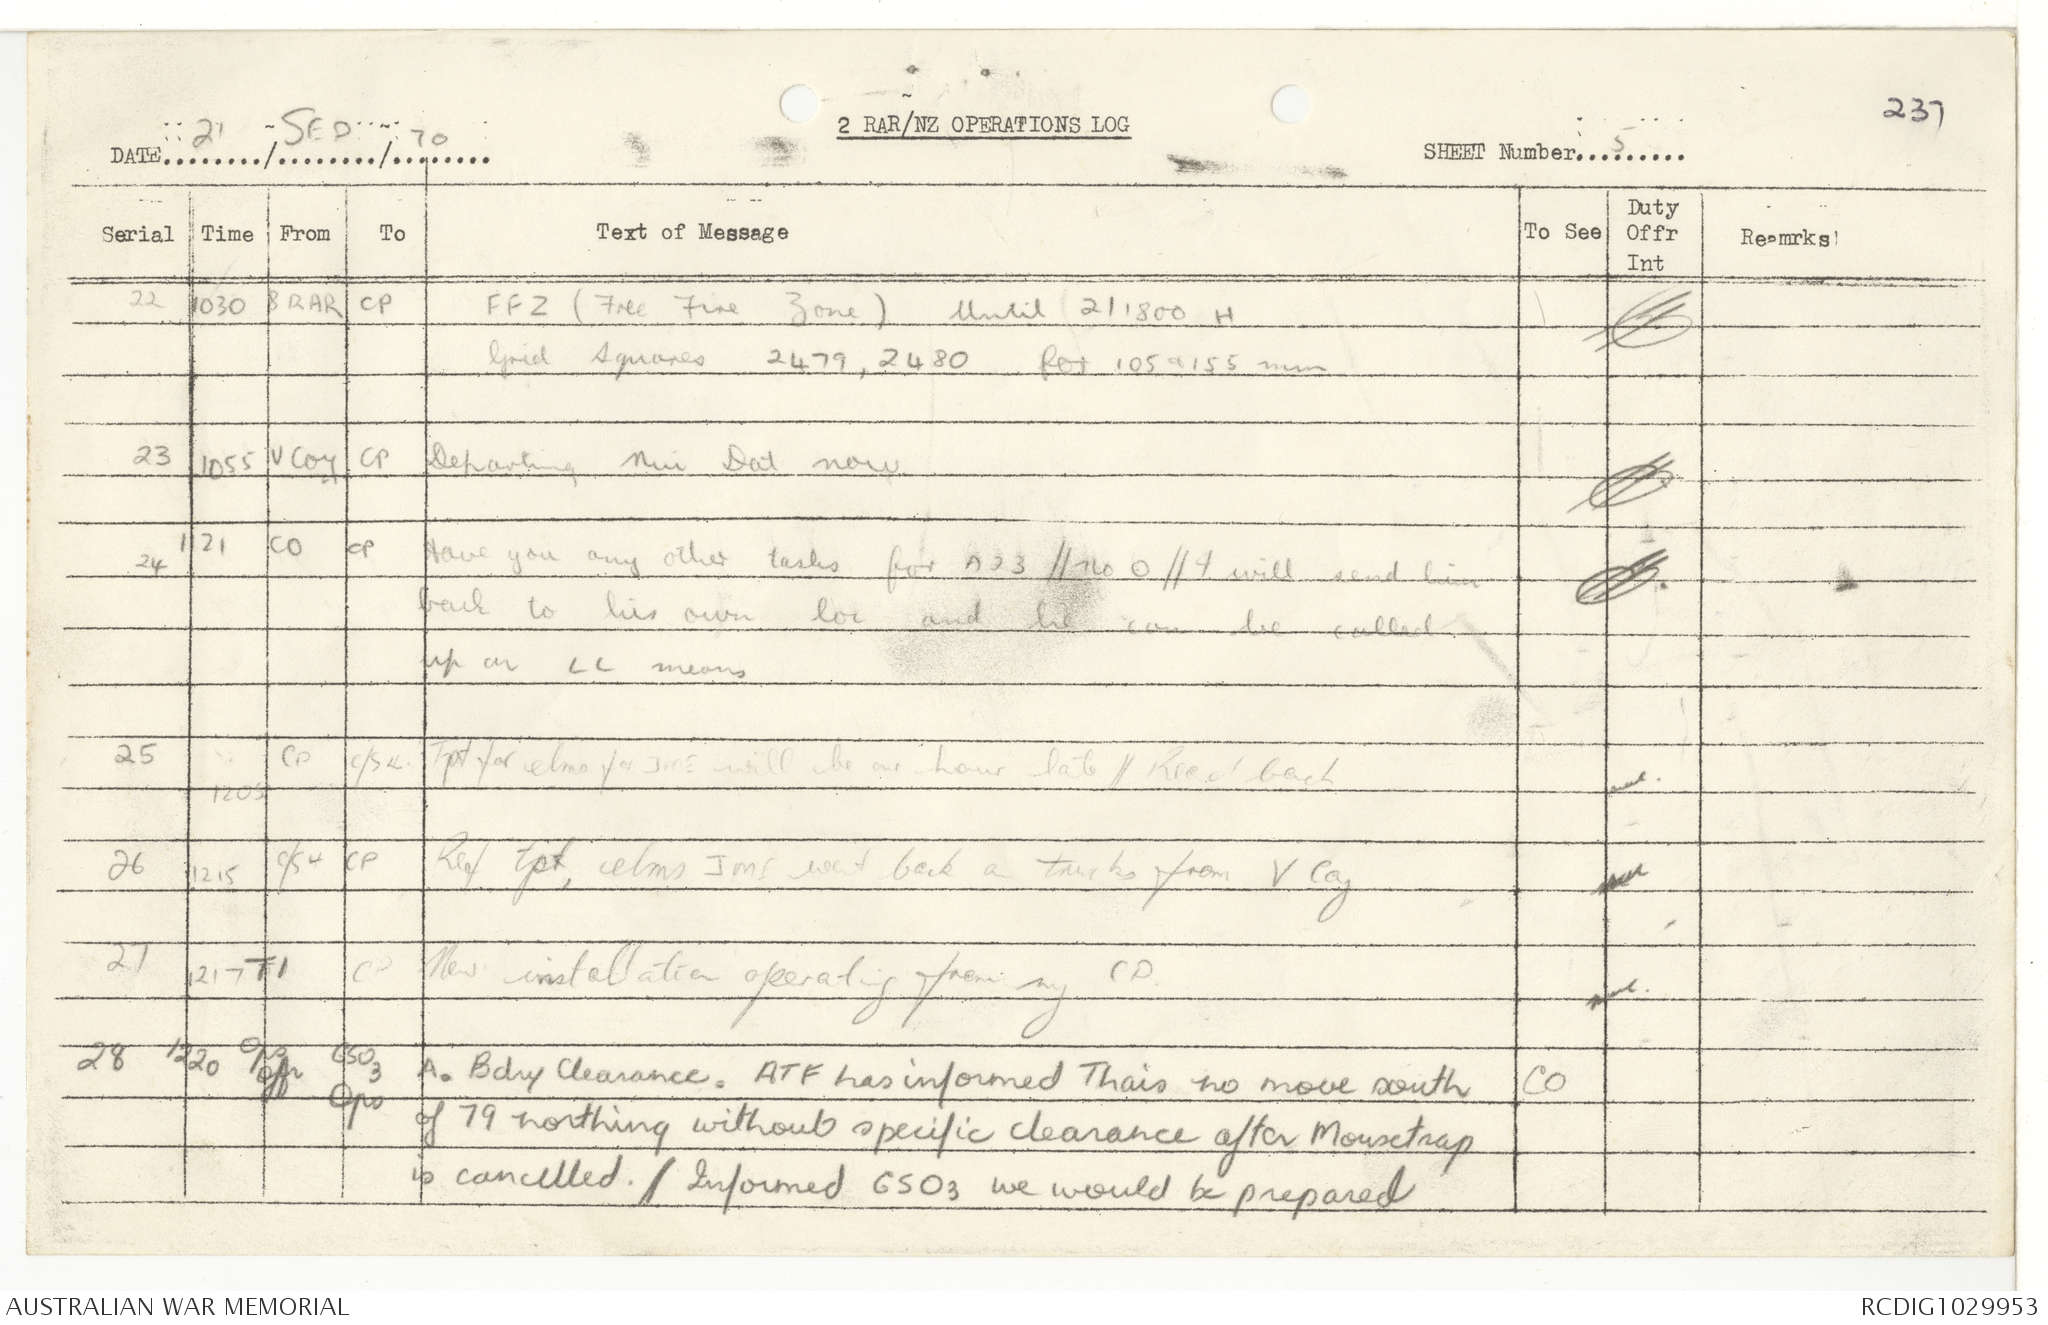 237
2 RAR/NZ OPERATIONS LOG
DATE 21 / SEP / 70
SHEET Number 5
Serial Time From To Text of Message To See Duty Offr Int Reamrks
22 1030 8 RAR CP FFZ (Free Fire Zone) Until 211800 H
Grid Squares 2479, 2480 for 105 & 155 mm
23 1055 V Coy CP Departing Nui Dat now.
24 1121 CO CP Have you any other tasks for A23 // no O // I will send him
back to his own loc and he can be called
up on LL means
25 1205 CP c/s 4 Tpt for elms for IME will be one hour late // Read back
26 1215 c/s 4 CP Ref tpt, elms IME went back on trucks from V Coy
27 1217 T1 CP New installation operating from my CP.
28 1220 Ops Offr GSO3 Ops A. Bdry Clearance. ATF has informed Thais no move south CO
of 79 northing without specific clearance after Mousetrap
is cancelled. / Informed GSO3 we would be prepared
AUSTRALIAN WAR MEMORIAL
RCDIG1029953